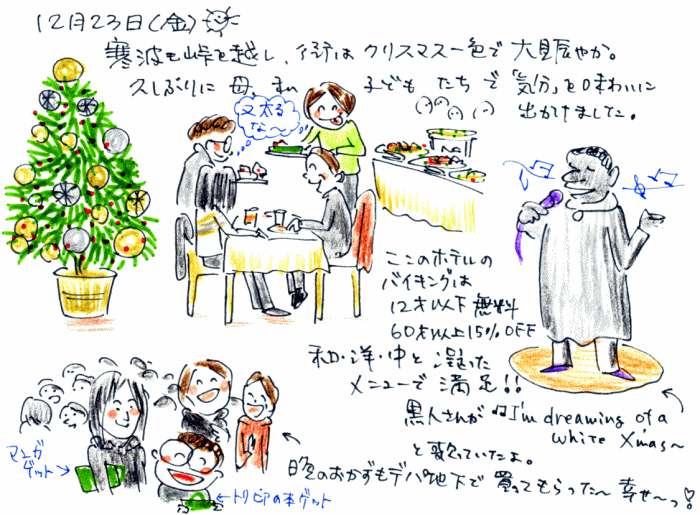 12月23日(金)
寒波も峠を越し、街はクリスマス一色で大賑やか。
久しぶりに母、私 子どもたちで「気分」を味わいに
出かけました。
又太る
な〜
ここのホテルの
バイキングは
12才以下無料
60才以上15%OFF
和・洋・中と混った
メニューで満足!!
黒人さんが ♫I'm dreaming of a
white X'mas〜
と歌っていたよ。
マンガ
ゲット→
←トリビアの本ゲット
のおかずもデパ地下で買ってもらった〜 幸せ〜っ!